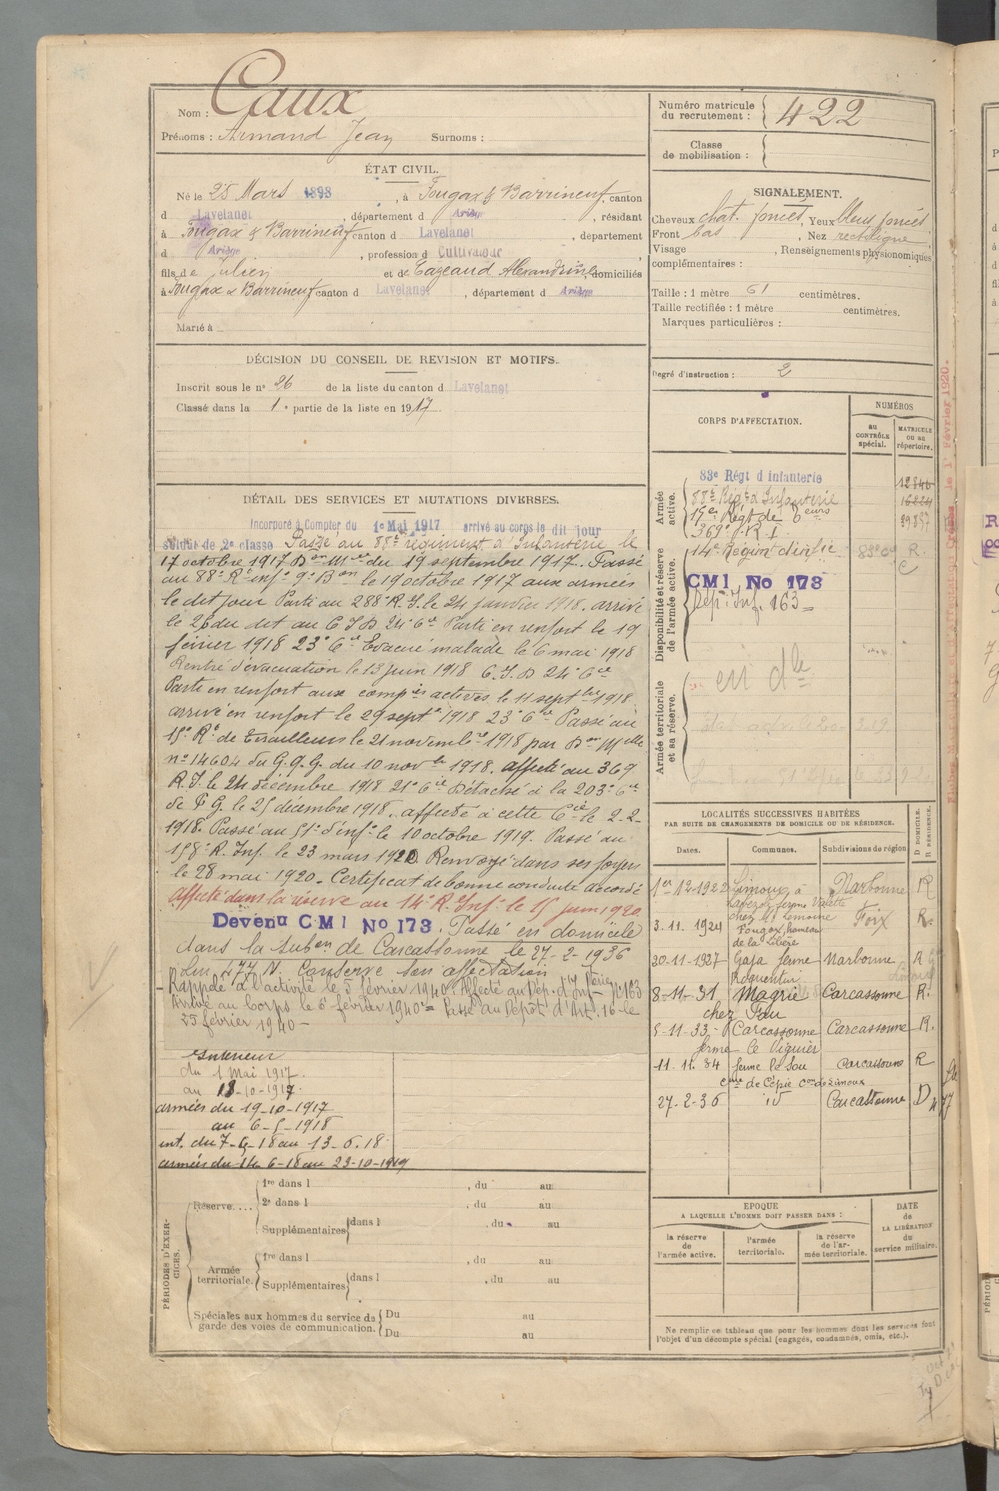 Nom : Caux
Prénoms : Armand Jean Surnoms :
ÉTAT CIVIL.
Né le 25 Mars 1898, à Fougax & Barrineuf, canton
d Lavelanet, département d Ariège, résidant
à Fougax & Barrineuf canton d Lavelanet, département
d Ariège, profession d Cultivateur
fils de Julien et de Cazeaud Alexandrine domiciliés
à Fougax & Barrineuf canton d Lavelanet, département d Ariège
Marié à
DÉCISION DU CONSEIL DE REVISION ET MOTIFS.
Inscrit sous le no 26 de la liste du canton d Lavelanet
Classé dans la 1e partie de la liste en 1917
DÉTAIL DES SERVICES ET MUTATIONS DIVERSES.
Incorporé à Compter du 1er Mai 1917 arrivé au corps le dit jour
soldat de 2e classe Passé au 88e régiment d'Infanterie le
17 octobre 1917 Don Mlle du 19 septembre 1917. Passé
au 88e R. inf. 9e Bon le 19 octobre 1917 aux armées
le dit jour Parti au 288e R.I. le 24 janvier 1918. arrivé
le 26 du dit au C I D 24e Cie Parti en renfort le 19
février 1918 23e Cie Evacué malade le 6 mai 1918
Rentré d'évacuation le 13 juin 1918 C.I.D 24e Cie
Parti en renfort aux compies actives le 11 septbre 1918
arrivé en renfort le 29 septe 1918 23e Cie Passé au
15e Rt de Tirailleurs le 21 novembre 1918 par Don Mlle
no 14604 du G.Q.G. du 10 novbre 1918. Affecté au 369
R.I. le 24 décembre 1918 21e Cie Détaché à la 203e Cie
de P G. le 25 décembre 1918. affecté à cette Cie le 2-2
1918. Passé au 51e d'infie le 10 octobre 1919. Passé au
158e R. Inf. le 23 mars 1920 Renvoyé dans ses foyers
le 28 mai 1920. Certificat de bonne conduite accordé
Affecté dans la réserve au 14e R. Inf. le 15 juin 1920
Devenu CMI No 173. Passé en domicile
dans la subon de Carcassonne le 27-2-1936
Conserve son affectation
Rappelé à l'activité le 5 février 1940. Affecté au Dép. d'Inf. no 163
Arrivé au corps le 6 février 1940 = Passé au Dépôt d'Art. 16 le
25 février 1940 -
Intérieur
du 1 Mai 1917
au 18-10-1917
armées du 19-10-1917
au 6-5-1918
int. du 7-5-18 au 13-6-18
armées du 14-6-18 au 23-10-1919
PÉRIODES D'EXERCICES.
Réserve....
1re dans l , du au
2e dans l , du au
Supplémentaires dans l , du au
Armée territoriale.
1re dans l , du au
Supplémentaires dans l , du au
Spéciales aux hommes du service de garde des voies de communication.
Du au
Du au
Numéro matricule du recrutement : 422
Classe de mobilisation :
SIGNALEMENT.
Cheveux chat. foncés, Yeux bleus foncés
Front bas, Nez rectiligne
Visage , Renseignements physionomiques
complémentaires :
Taille : 1 mètre 61 centimètres.
Taille rectifiée : 1 mètre centimètres.
Marques particulières :
Degré d'instruction : 2
CORPS D'AFFECTATION.
NUMÉROS
au CONTRÔLE spécial.
MATRICULE ou au répertoire.
Armée active.
83e Régt d infanterie 12846
88e Régt d'Infanterie
15e Régt de
369e R I
Disponibilité et réserve de l'armée active.
14e Région divise R.
CMI No 173
Dép. Inf. 163 =
Armée territoriale et sa réserve.
en dle
LOCALITÉS SUCCESSIVES HABITÉES
PAR SUITE DE CHANGEMENTS DE DOMICILE OU DE RÉSIDENCE.
Dates. Communes. Subdivisions de région D DOMICILE. R RÉSIDENCE.
1er 12-1922 Limoux à Narbonne R
ferme Valette
3-11-1924 chez Mr Lemoine Foix R.
Fougax, hameau
de la Lilière
20-11-1927 Gaja ferme Narbonne R
Roquentur
8-11-31 Magrie Carcassonne R.
chez Pau
5-11-33 Carcassonne Carcassonne R.
ferme le Viguier
11.11.34 ferme le Sou Carcassonne R
cne de Cépie Con de Limoux
27-2-36 id Carcassonne D
EPOQUE
A LAQUELLE L'HOMME DOIT PASSER DANS :
la réserve de l'armée active.
l'armée territoriale.
la réserve de l'armée territoriale.
DATE de LA LIBÉRATION du service militaire.
Ne remplir ce tableau que pour les hommes dont les services font
l'objet d'un décompte spécial (engagés, condamnés, omis, etc.).